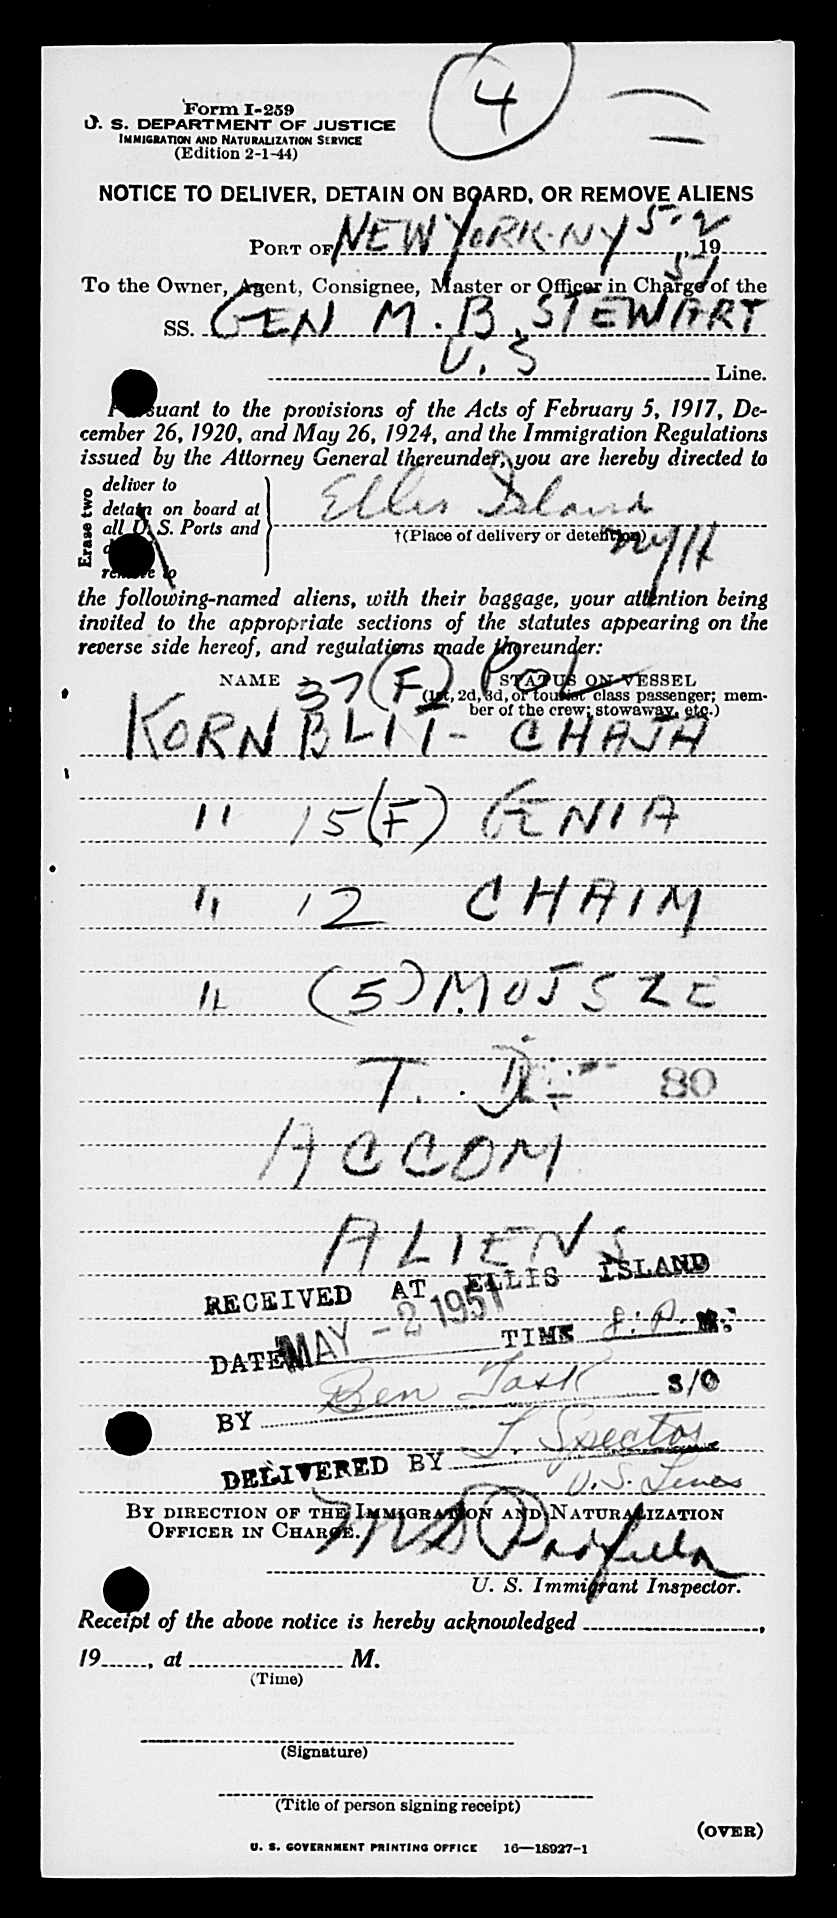 4
Form I-259
U. S. DEPARTMENT OF JUSTICE
IMMIGRATION AND NATURALIZATION SERVICE
(Edition 2-1-44)
NOTICE TO DELIVER, DETAIN ON BOARD, OR REMOVE ALIENS
PORT OF NEW YORK-NY 5-2, 19 51
To the Owner, Agent, Consignee, Master or Officer in Charge of the
SS. GEN M. B. STEWART
U. S Line.
Pursuant to the provisions of the Acts of February 5, 1917, De-
cember 26, 1920, and May 26, 1924, and the Immigration Regulations
issued by the Attorney General thereunder, you are hereby directed to
Erase two
deliver to
detain on board at
all U. S. Ports and
remove to
Ellis Island
†(Place of delivery or detention)
NYH
the following-named aliens, with their baggage, your attention being
invited to the appropriate sections of the statutes appearing on the
reverse side hereof, and regulations made thereunder:
NAME 37 (F) Pol STATUS ON VESSEL
(1st, 2d, 3d, or tourist class passenger; mem-
ber of the crew; stowaway, etc.)
KORNBLIT- CHAJA
" 15 (F) GENIA
" 12 CHAIM
" (5) MOJSZE
T. D. 80
ACCOM
ALIENS
RECEIVED AT ELLIS ISLAND
DATE MAY - 2 1951 TIME 8: P. M.
BY Ben Task S/O
DELIVERED BY J. Spector
U.S. Lines
BY DIRECTION OF THE IMMIGRATION AND NATURALIZATION
OFFICER IN CHARGE.
U. S. Immigrant Inspector.
Receipt of the above notice is hereby acknowledged ,
19 , at M.
(Time)
(Signature)
(Title of person signing receipt)
(OVER)
U. S. GOVERNMENT PRINTING OFFICE 16—18927-1